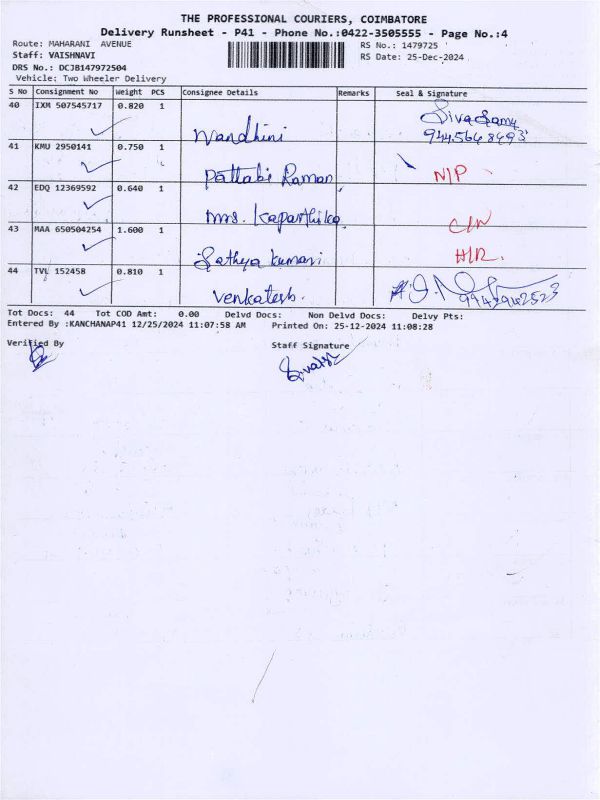 THE PROFESSIONAL COURIERS, COIMBATORE
Delivery Runsheet - P41 - Phone No.:0422-3505555 - Page No.:4
Route: MAHARANI AVENUE
RS No.: 1479725
Staff: VAISHNAVI
RS Date: 25-Dec-2024
DRS No.: DCJB147972504
Vehicle: Two Wheeler Delivery
S No Consignment No Weight PCS Consignee Details Remarks Seal & Signature
40 IXM 507545717 0.820 1 Nandhini
41 KMU 2950141 0.750 1 Pattabi Raman N/P
42 EDQ 12369592 0.640 1 Mrs. Kaparthika
43 MAA 650504254 1.600 1 Sathya kumari
44 TVL 152458 0.810 1 Venkatesh.
Tot Docs: 44 Tot COD Amt: 0.00 Delvd Docs: Non Delvd Docs: Delvy Pts:
Entered By :KANCHANAP41 12/25/2024 11:07:58 AM Printed On: 25-12-2024 11:08:28
Verified By
Staff Signature